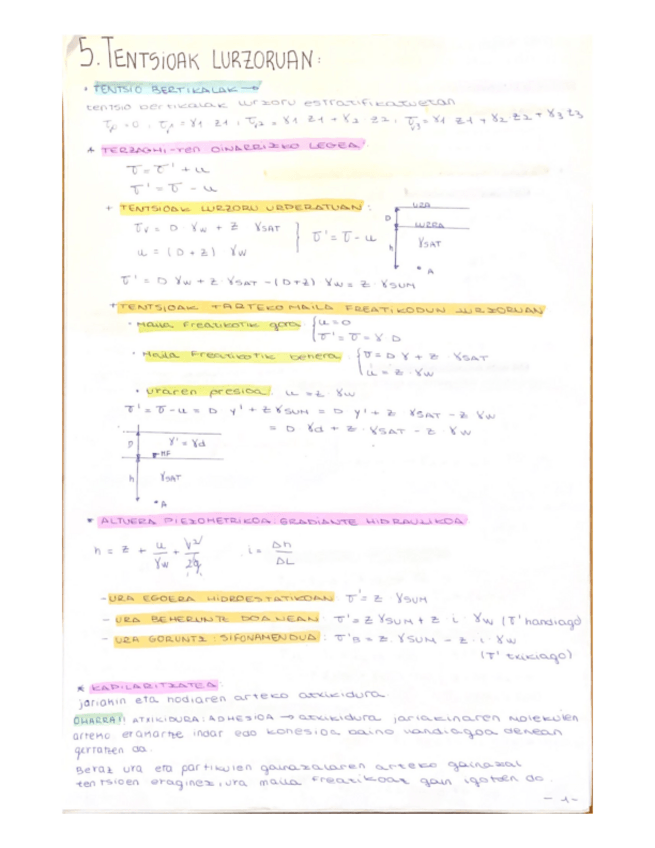 5. TENTSIOAK LURZORUAN:
• TENTSIO BERTIKALAK →
tentsio bertikalak lurzoru estratifikatuetan
σ0 = 0 ; σ1 = γ1 z1 ; σv2 = γ1 z1 + γ2 z2 ; σv3 = γ1 z1 + γ2 z2 + γ3 z3
* TERZAGHI-ren OINARRIZKO LEGEA
σ = σ' + u
σ' = σ - u
+ TENTSIOAK LURZORU URPERATUAN:
σv = D γw + z γSAT
u = (D+z) γw
} σ' = σ - u
σ' = D γw + z γSAT - (D+z) γw = z γSUM
URA
D
LURRA
h
γSAT
• A
+ TENTSIOAK TARTEKO MAILA FREATIKODUN LURZORUAN
• Maila Freatikotik gora { u = 0
σ' = σ = γ D
• Maila Freatikotik behera { σ = D γ + z γSAT
u = z · γw
• uraren presioa: u = z γw
σ' = σ - u = D γ' + z γSUM = D γ' + z γSAT - z γw
= D γd + z · γSAT - z · γw
D
γ' = γd
MF
h
γSAT
• A
* ALTUERA PIEZOMETRIKOA. GRADIANTE HIDRAULIKOA
h = z + u/γw + V²/2g
i = Δh/ΔL
- URA EGOERA HIDROESTATIKOAN σ' = z γSUM
- URA BEHERUNTZ DOANEAN: σ' = z γSUM + z · i · γw (σ' handiago)
- URA GORUNTZ: SIFONAMENDUA: σ'B = z · γSUM - z · i · γw
(σ' txikiago)
* KAPILARITZATEA:
jariakin eta hodiaren arteko atxikidura.
OHARRA!! ATXIKIDURA: ADHESIOA → atxikidura jariakinaren molekulen
arteko erakarte indar edo kohesioa baino handiagoa denean
gertatzen da.
Beraz ura eta partikulen gainazalaren arteko gainazal
tentsioen eraginez, ura maila freatikoaz gain igotzen da.
- 1 -